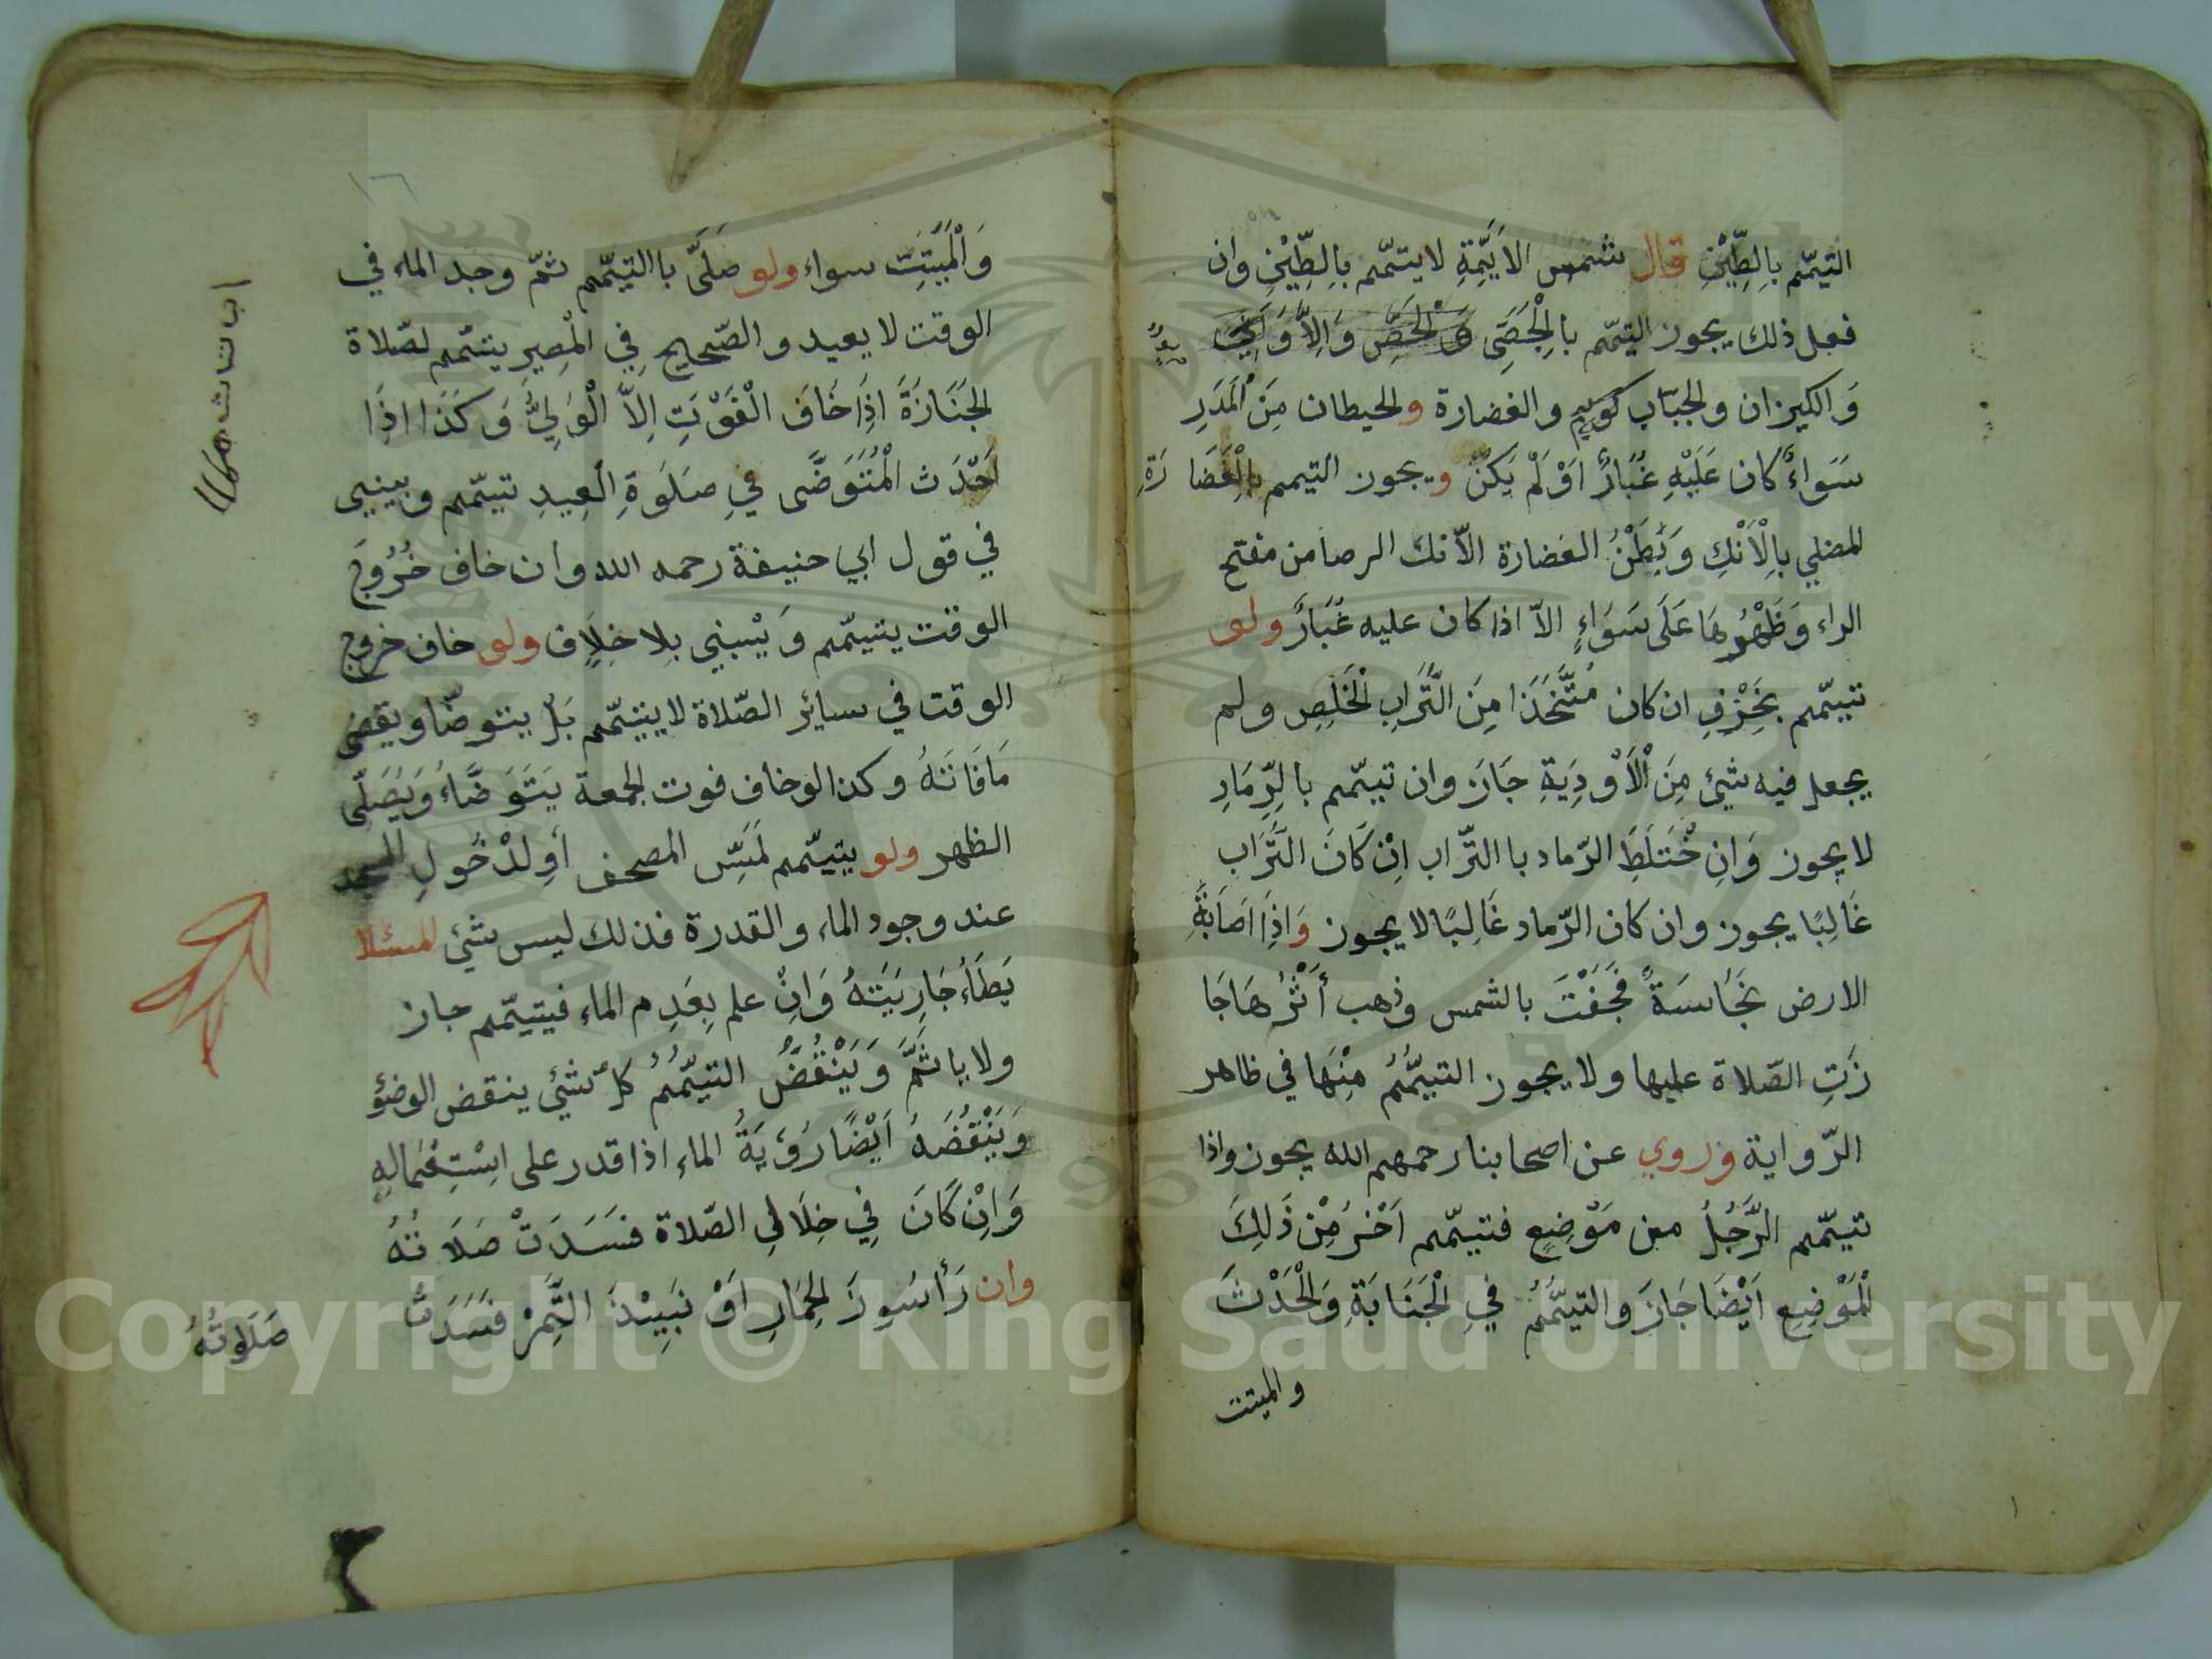 التيمّم بِالطِّيْنِ قال شمس الاَيِّمَّةِ لا يتمّم بِالطِّيْنِ وان
فعل ذلك يجوز التيمّم بالْحَصَى وَالْحَصِّ وَالاَّ
وَالكيزان والجبّاب والغضارة والحيطان مِنَ الْمَدَرِ
سَوَاءً كان عَلَيْهِ غُبَارٌ اَوْلَمْ يَكنْ ويجوز التيمم بِالْغَضَارَةِ
المضلي بِالْاَنْكِ وَبَطْنُ الغضارة الاّنك الرصامن مفتح
الراء وَظَهْرُهَا عَلَى سَوَاءٍ الاّ اذا كان عليه غُبَارٌ ولو
تيمّم بِخَزْفٍ ان كان مُتَّخَذَا مِنَ التُّرَابِ الْخَلِصِ ولم
يجعل فيه شيئ مِنَ الْاَوْدِيَةِ جَازَ وان تيمّم بالرِّمَادِ
لا يجوز وَانِ خْتَلَطَ الرّماد باالتّراب اِنْ كَانَ التُّرَاب
غَالِبًا يجوز وان كان الرّماد غَالِبًا لا يجوز وَاِذَا اَصَابَةِ
الارض نجَاسَةً فَجَفَتْ بالشمس وذهب أَثْرُهَا جَا
زَتِ الصّلاة عليها ولا يجوز التيمُّمُ مِنْهَا في ظاهر
الرّواية وروي عن اصحابنا رحمهم الله يجوز واذا
تيمّم الرَّجُلُ من مَوْضِعٍ فتيمّم اَخْرُ مِنْ ذَلِكَ
الْمَوْضِعِ اَيْضًا جَازَ والتيمُّمُ فِي الْجَنَابَةِ وَالْحَدْثَ
والميتت
وَالْمَيِّتِتِ سواء ولو صَلَّى باالتيمّم ثمّ وجد الماء في
الوقت لا يعيد والصّحيح فِي الْمِصِيرِ يتيمّم لصّلاة
الجَنَازَةَ اذَا خَافَ الْفَوْتِ اِلاَّ الْوَلِيُّ وَكَذَا اذَا
اَحْدَث الْمُتَوَضَّى فِي صَلَوةِ الْعِيدِ تيمّم ويبني
في قول ابي حنيفة رحمه الله وان خاف خُرُوجَ
الوقت يتيمّم وَيْبني بِلا خِلَافٍ ولو خاف خروج
الوقت في سائر الصّلاة لا يتيمّم بَلْ يتوضّا ويقضى
مَا فَاتَهُ وكذا لو خاف فوت الجمعة يَتَوَضَّاءُ وَيُصَلّى
الظهر ولو يتيمّم لَمَسِّ المصحف أَوِلدْخُولِ المسجد
عند وجود الماء والقدرة فذلك ليس شيئ المسئلا
يَطَاءُ جَارِيَتَهُ وَاِنْ علم بِعَدِم الماء فيتيمّم جاز
ولا ياثَمَّ وَيَنْقُضُ التيمُّمُ كلّ شيئ ينقض الوضؤ
وَيَنْقُضَهُ اَيْضًا رُوْيَةُ الماء اذا قدر على اِسْتِعْمَالِهِ
وَاِنْ كَانَ فِي خِلَالِ الصّلاة فسَدَتْ صَلَاتُهُ
وان رَأسُورَ الحِمَارِ اَوْ نَبِيْذَ التَّمِرْ فَسَدَتْ
صَلَوتُهُ